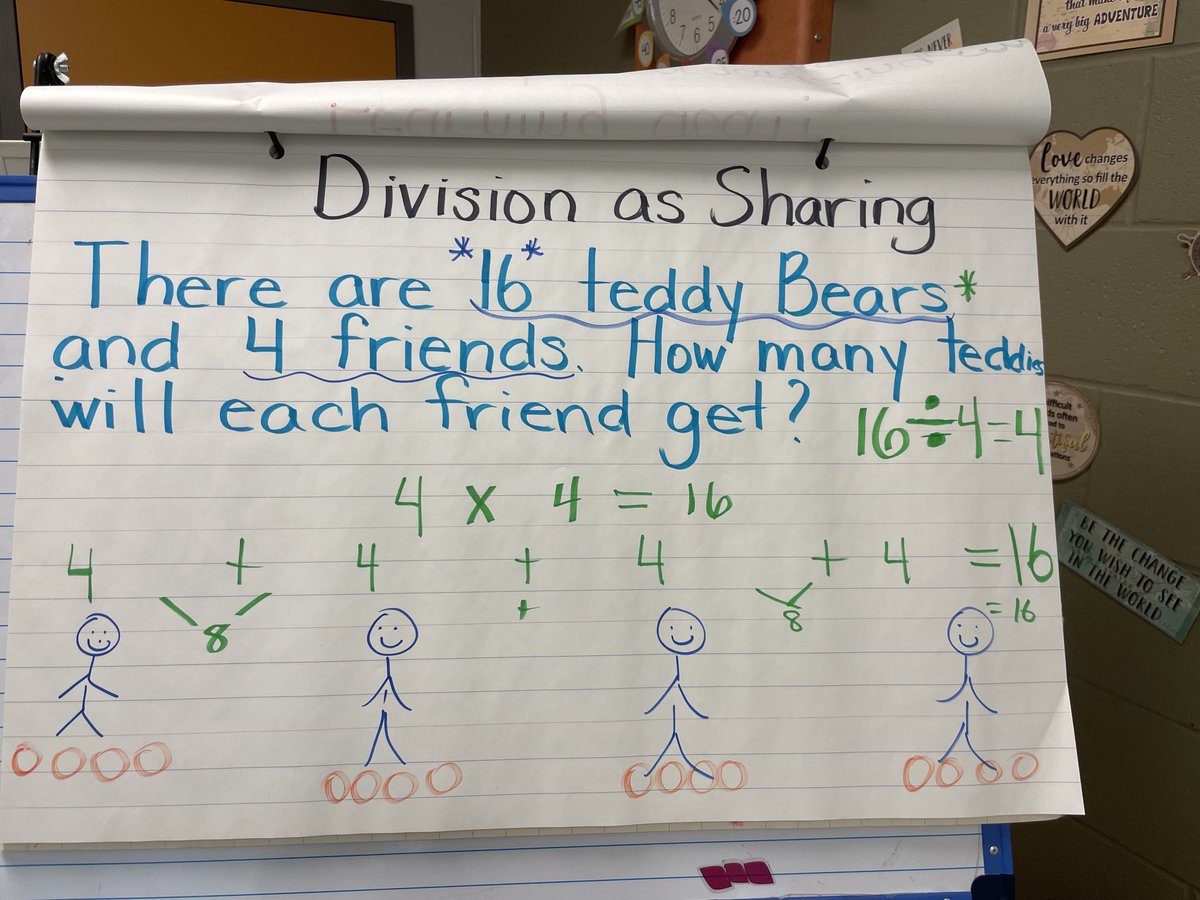 8 7 6 5
-20
40
that make
a very big ADVENTURE
NEVER
Division as Sharing
There are *16* teddy Bears*
and 4 friends. How many teddies
will each friend get?
16÷4=4
4 x 4 = 16
4 + 4 + 4 + 4 =16
8 + 8 = 16
Love changes
everything so fill the
WORLD
with it
BE THE CHANGE
YOU WISH TO SEE
IN THE WORLD